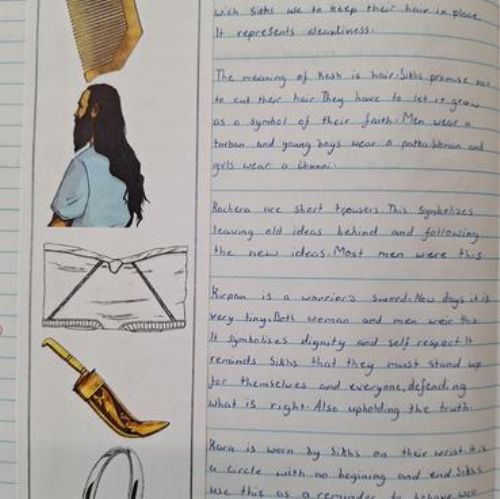 wich Sikhs use to keep their hair in place.
It represents cleanliness.
The meaning of Kesh is hair. Sikhs promise not
to cut their hair They have to let it grow
as a symbol of their faith. Men wear a
turban and young boys wear a patka. Woman and
girls wear a chunni.
Kachera are short trousers. This symbolises
leaving old ideas behind and following
the new ideas. Most men were this
Kirpan is a warrior's sword. Now days it is
very tiny. Both woman and men weir this
It symbolises dignity and self respect. It
reminds Sikhs that they must stand up
for themselves and everyone, defending
what is right. Also upholding the truth.
Kara is worn by Sikhs on their wrist. It is
a circle with no begining and end. Sikhs
use this as a reminder to behave well